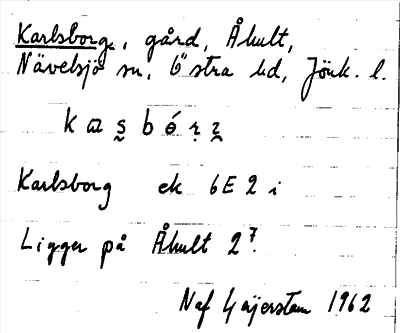 Karlsborg, gård, Åhult,
Nävelsjö sn, Östra hd, Jönk. l.
Karlsborg ek 6E 2 i
Ligger på Åhult 2⁷.
Naf 1962